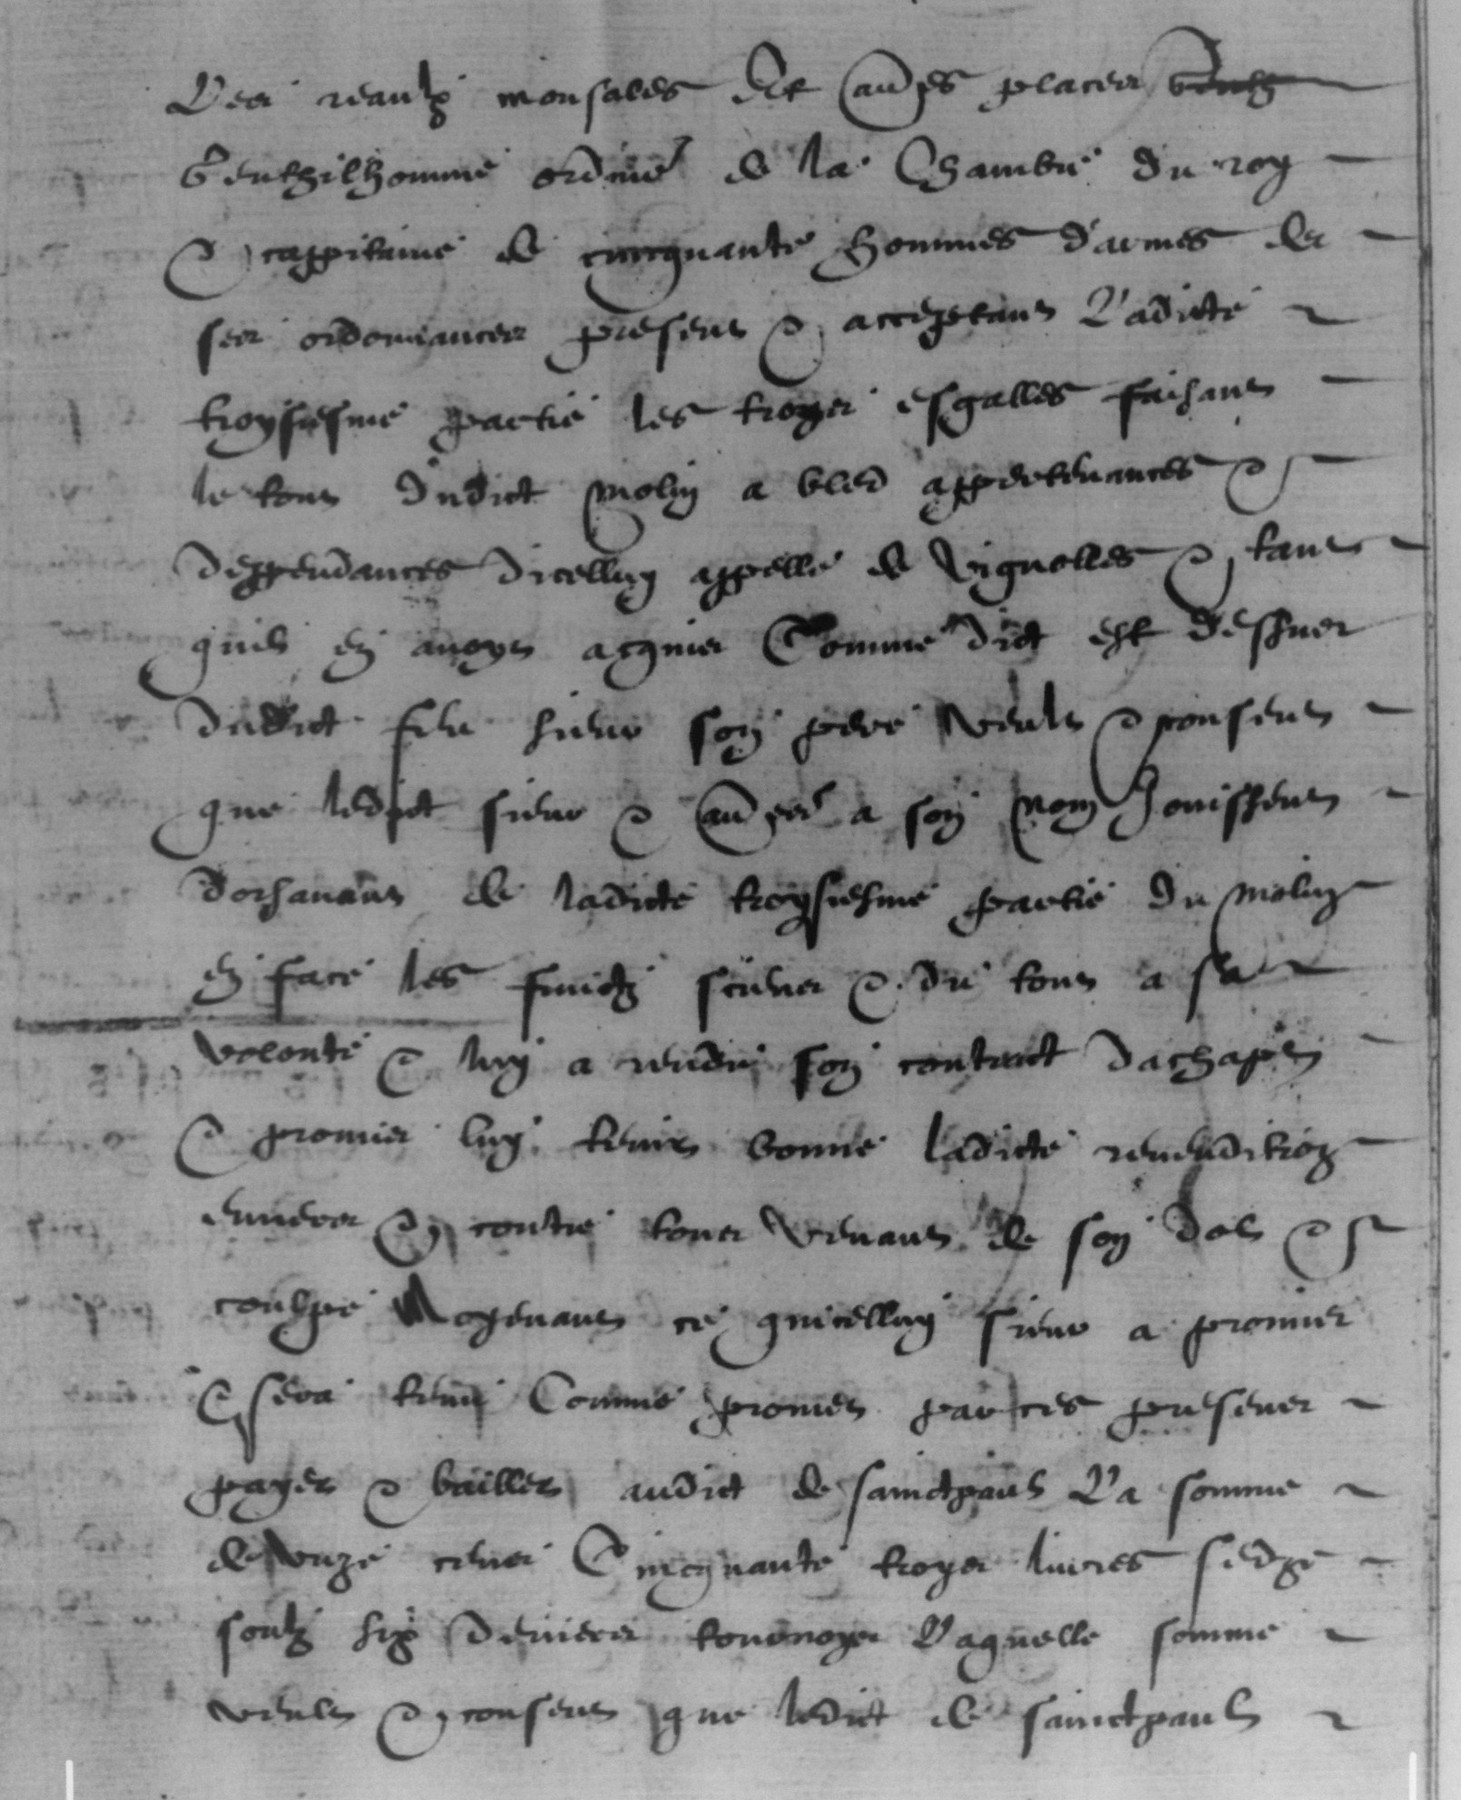 Des reaulx monsales et aultres places
Gentilhomme ordine de la Chambre du roy
et cappitaine de cincquante hommes d'armes de
ses ordonnances presens et acceptans Ladicte
troysiesme partie les troyes esgalles faisans
le tout dudict molin a bled appertenances et
deppendances dicelluy appelle de Vignolles et tant
quil en avoyt acquies Comme dict est dessus
dudict feu sieur son pere veult et consent
que ledict sieur et aultres a son nom Jouissent
dorsanant de ladicte troysiesme partie du molin
en face les fruictz siens et du tout a sa
volonte et luy a rendu son contract dachapt
et promis luy tenir bonne ladicte revendition
envers et contre tous venans de son dol et
coulpe Moyenant ce quicelluy sieur a promis
et sera tenu Comme promet par ces presenes
payer et bailler audict de sainctpaul La somme
de unze cens Cincquante troyes livres sedze
soulz six deniers tournoyes Laquelle somme
veult et consent que ledict de sainctpaul